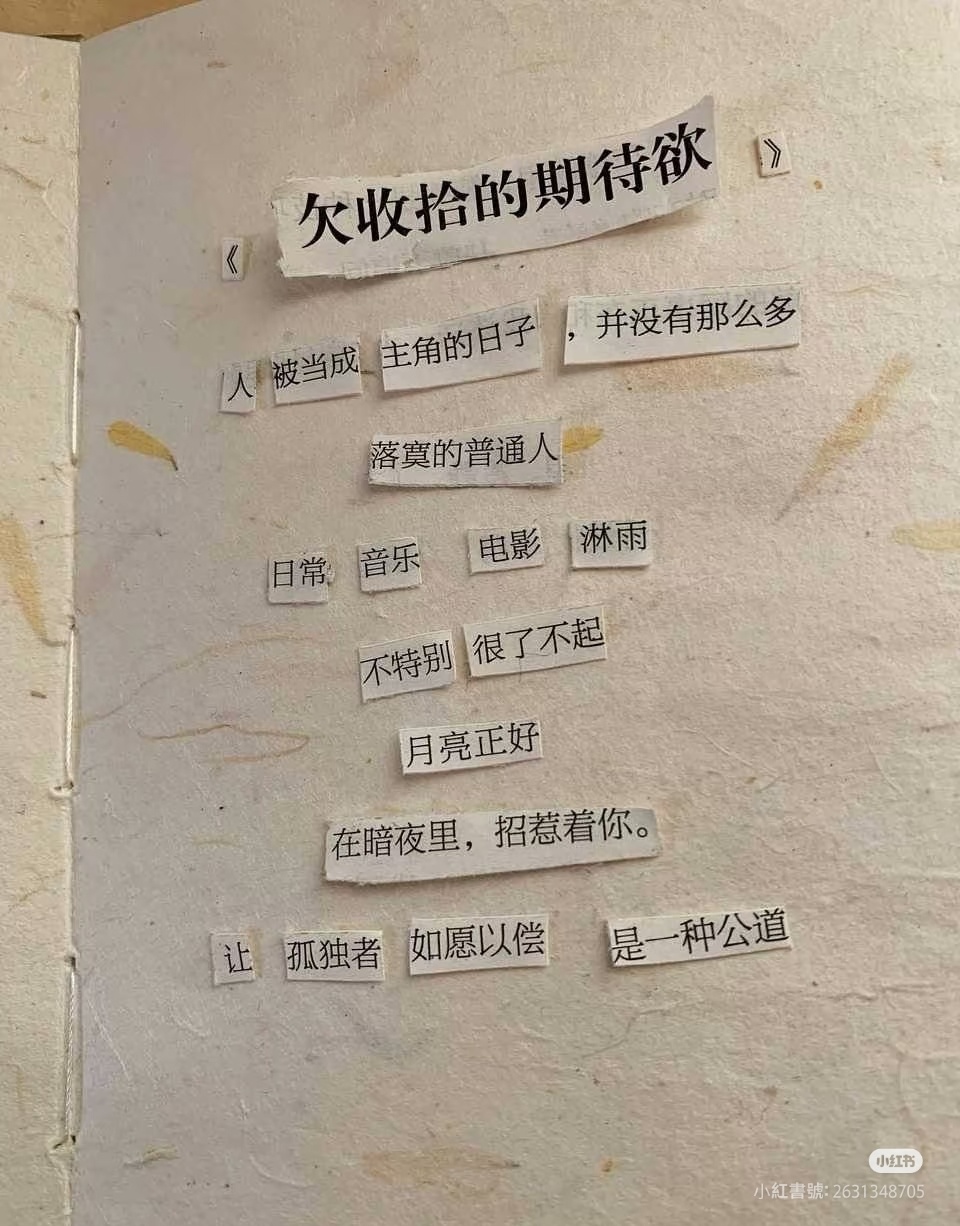 《欠收拾的期待欲》
人 被当成 主角的日子 ，并没有那么多
落寞的普通人
日常 音乐 电影 淋雨
不特别 很了不起
月亮正好
在暗夜里，招惹着你。
让 孤独者 如愿以偿 是一种公道
小红书
小紅書號: 2631348705